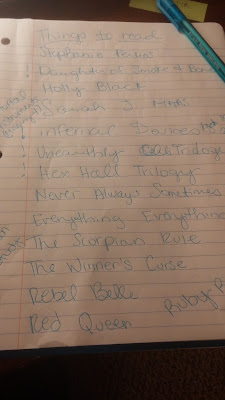 Things to read
Stephanie Perkins
Daughter of Smoke & Bone
Holly Black
Sarah J. Maas
infernal Devices
Unearthly Trilogy
Hex Hall Trilogy
Never Always Sometimes
Everything Everything
The Scorpian Rule
The Winner's Curse
Rebel Belle
Ruby R
Red Queen